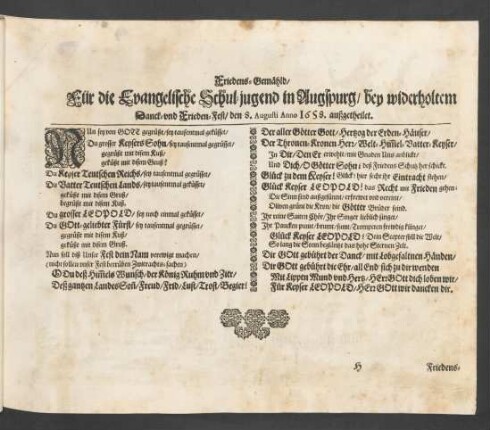 Friedens-Gemähld/
Für die Evangelische Schul-jugend in Augspurg/ bey widerholtem
Danck-und Frieden-Fest/ den 8. Augusti Anno 1658. außgetheilet.
NUn sey von GOTT gegrüßt/ sey tausentmal geküsset/
Du grosser Keysers Sohn/ sey tausentmal gegrüsset/
gegrüßt mit disem Kuß/
geküßt mit disem Gruß!
Du Keyser Teutschen Reichs/ sey tausentmal gegrüsset/
Du Vatter Teutschen Lands/ sey tausentmal geküsset/
geküßt mit disem Gruß/
begrüßt mit disem Kuß.
Du grosser LEOPOLD/ sey noch einmal geküsset/
Du GOtt-geliebter Fürst/ sey tausentmal gegrüsset/
gegrüßt mit disem Kuß/
geküßt mit disem Gruß.
Nun soll diß Unser Fest dein Nam verewigt machen/
(nicht sollen unser Fest betrüben Zwitrachts-sachen)
O Du deß Himmels Wunsch/ der König Ruhm und Zier/
Deß gantzen Landes Soñ/ Freud/ Frid/ Lust/ Trost/ Begier!
Der aller Götter Gott/ Hertzog der Erden-Häuser/
Der Thronen-Kronen Herr/ Welt-Himmel-Vatter-Keyser/
In Dir/ Den Er erwehlt/ mit Gnaden Uns anblickt/
Und Dich/ O Götter Sohn/ deß Friedens Schutz herschickt.
Glück zu dem Keyser! Glück! hier steht ihr Eintracht stehen/
Glück Keyser LEOPOLD! das Recht und Frieden gehen
Die Sinn sind außgesünt/ erfrewet und vereint/
Oliven grünen die Krone die Götter Brüder seynd.
Ihr reine Saiten Chör/ Ihr Singer lieblich singet/
Ihr Paucken pauw/ brumt/ sumt/ Trompeten frewdig klinget/
Glück Keyser LEOPOLD! Dein Scepter füll die Welt/
So lang die Sonn beglänzt das hohe Sternen Zelt.
Dir GOtt gebührt der Danck/ mit Lobgefaltnen Händen/
Dir GOtt gebührt die Ehr/ all End sich zu dir wenden
Mit Lippen Mund und Hertz/ HErr GOtt dich loben wir/
Für Keyser LEOPOLD/ HErr GOtt wir dancken dir.
H
Friedens-